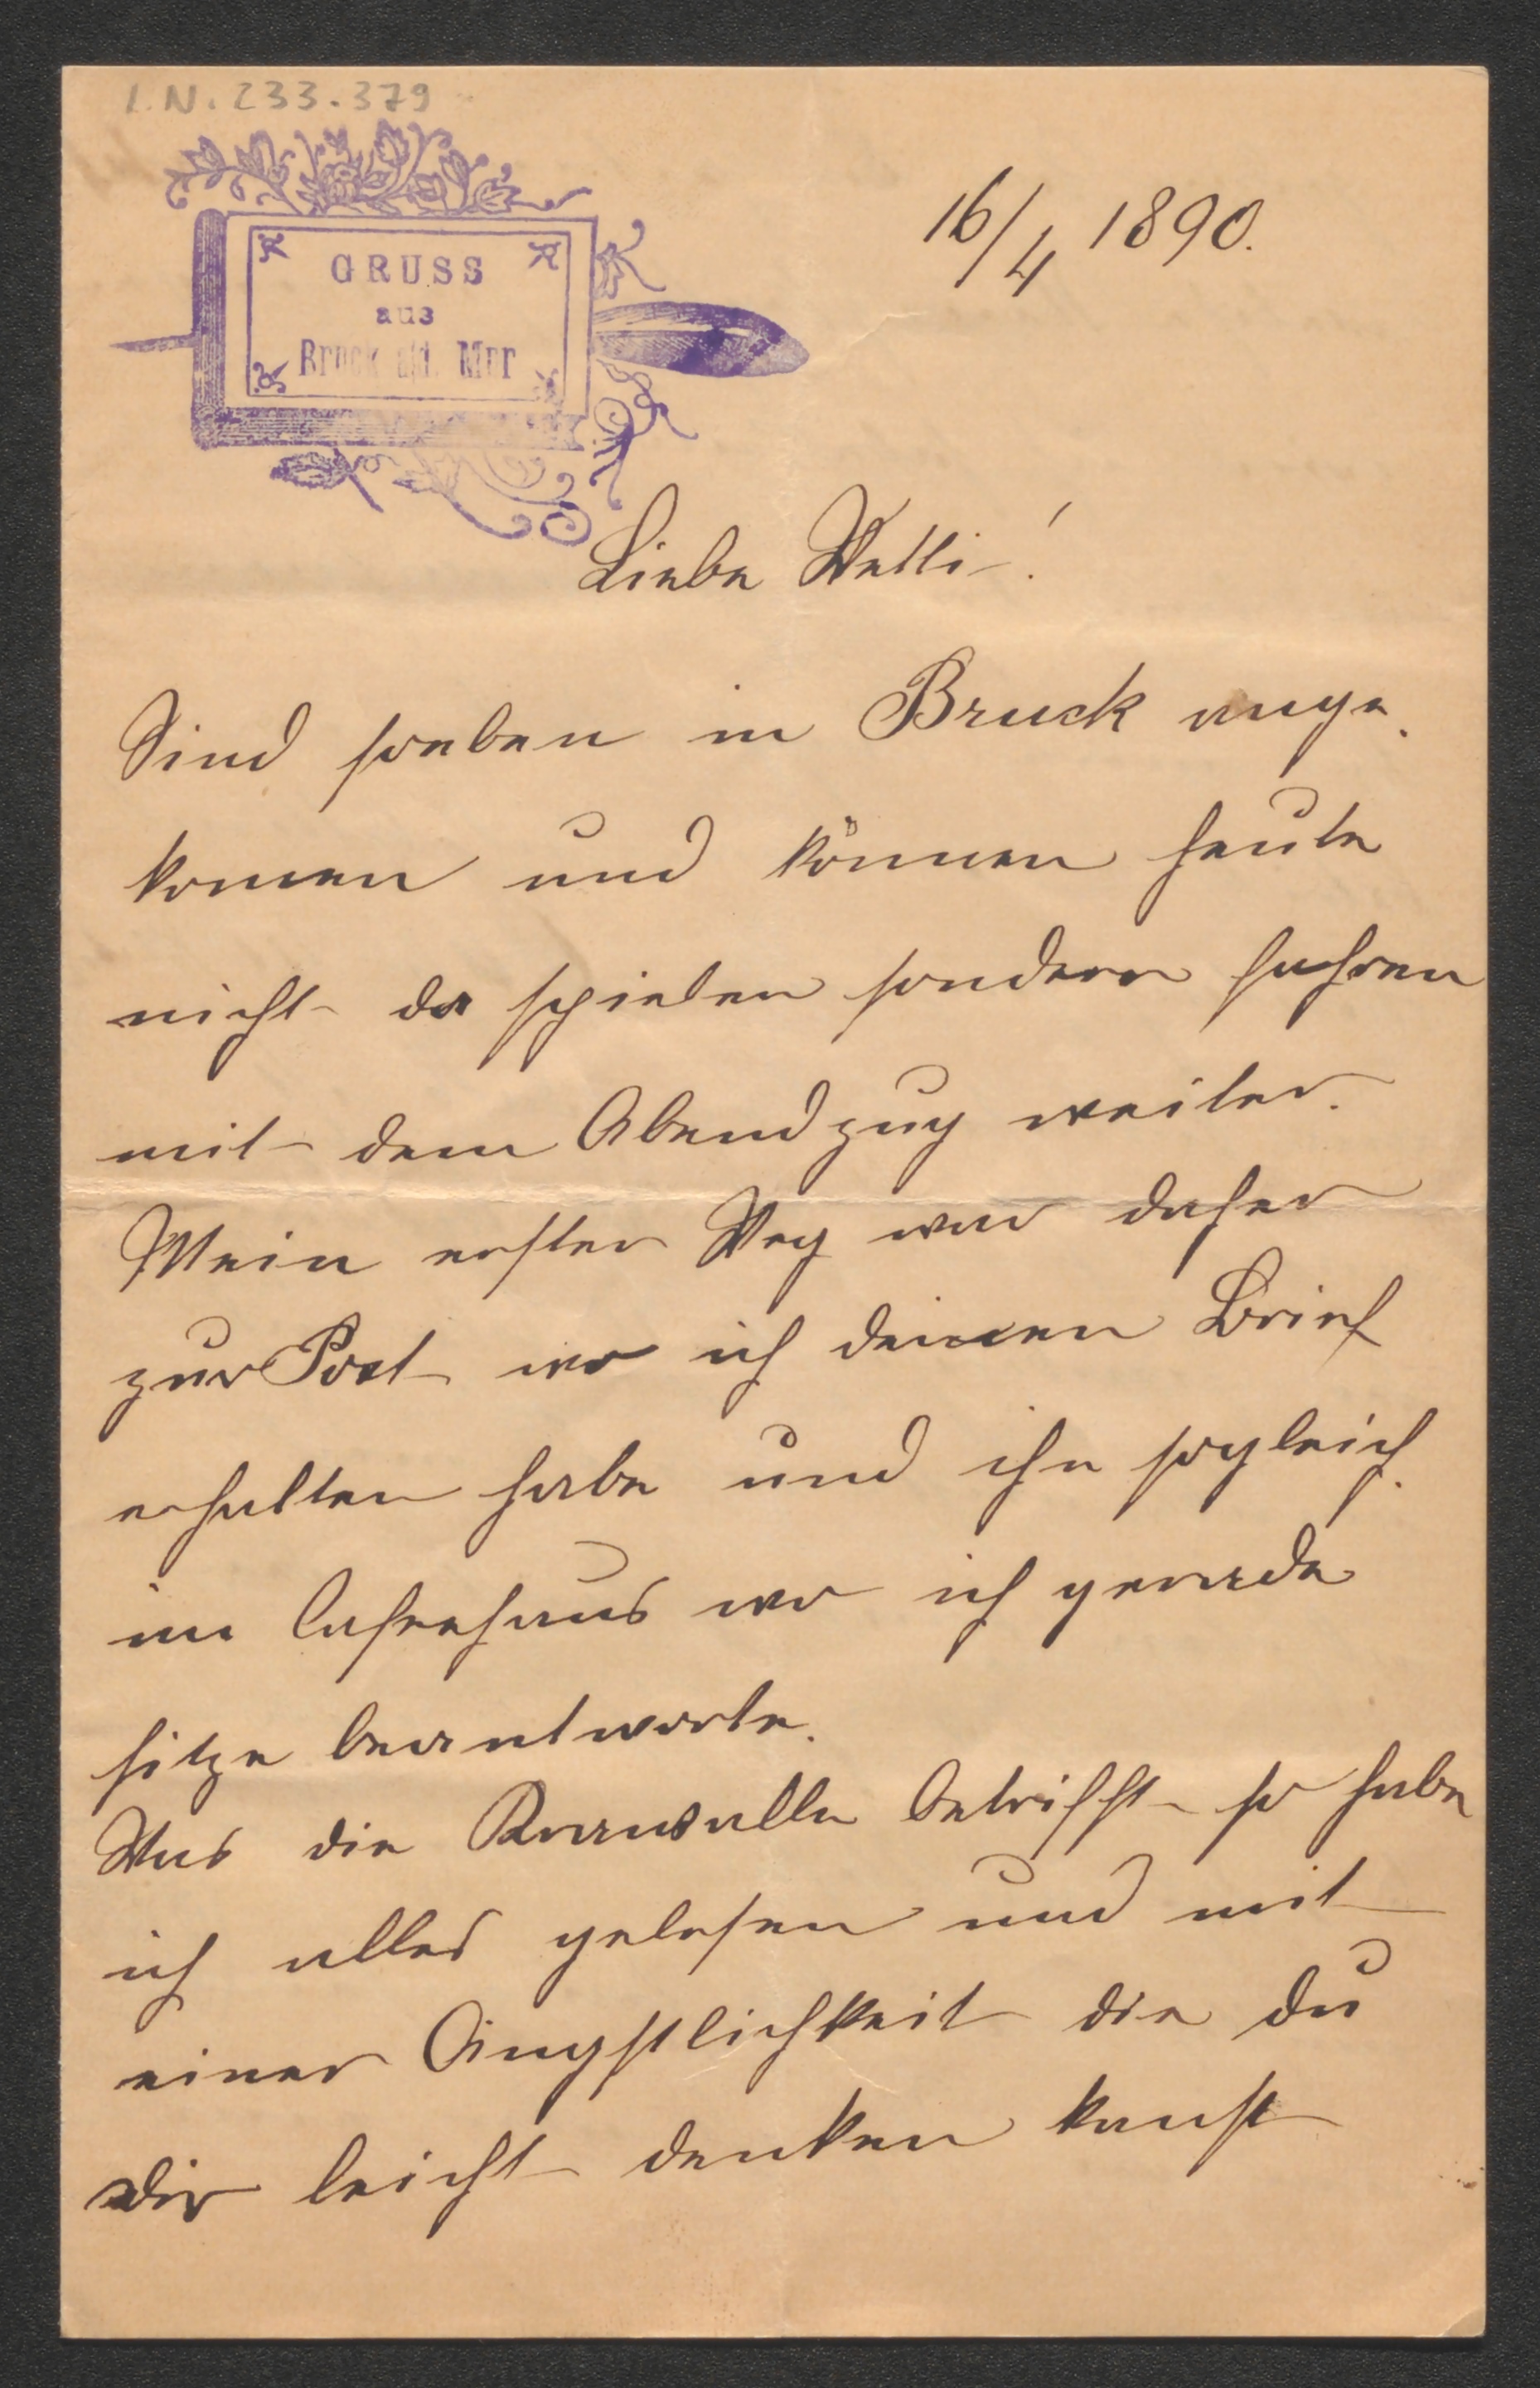 I.N. 233.379
GRUSS
aus
Bruck a/d. Mur
16/4 1890.
Liebe Wetti!
Sind soeben in Bruck ange.
komen und können heute
nicht da spielen sondern fahren
mit dem Abendzug weiter.
Mein erster Weg war daher
zur Post wo ich deinen Brief
erhalten habe und ihn sogleich
im Cafeehaus wo ich gerade
sitze beantworte.
Was die betrifft so habe
ich alles gelesen und mit
einer Ängstlichkeit die du
dir leicht denken kanst